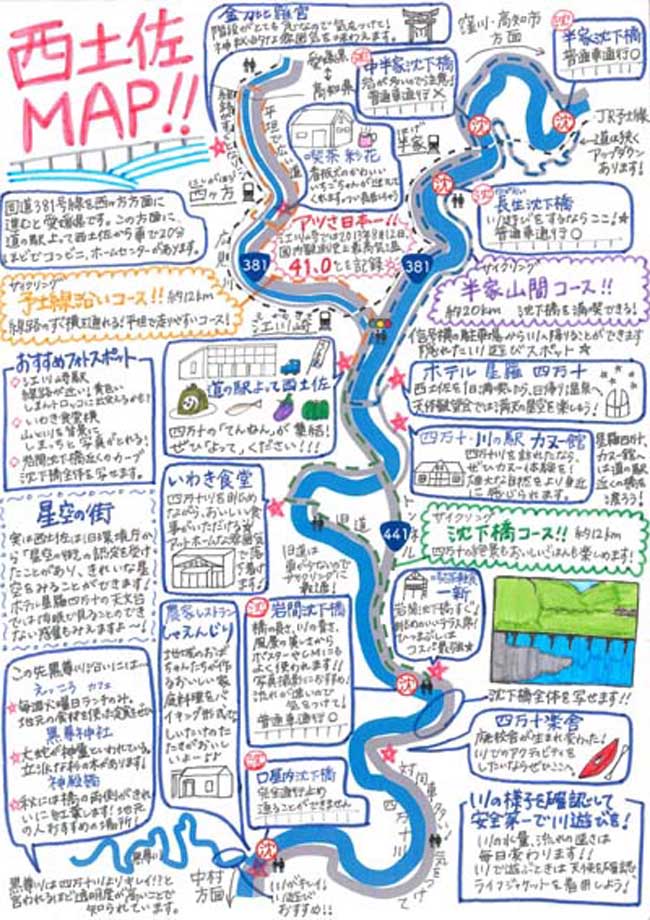 西土佐
MAP!!
金刀比羅宮
階段がとても急なので気をつけて!
神秘的な雰囲気を味わえます。
愛媛県
高知県
窪川・高知市
方面
半家沈下橋
普通車通行○
中半家沈下橋
普通車通行×
沈
JR予土線
道は狭く
アップダウン
あります!
喫茶 彩花
半家
平坦で広い道
長生沈下橋
川遊びをするならここ!★
普通車通行○
四ヶ方
国道381号線を西ヶ方方面に
進むと愛媛県です。この方面に、
道の駅よって西土佐から車で20分
ほどでコンビニ、ホームセンターがあります。
アツさ日本一!!
江川崎では2013年8月12日、
国内観測史上最高気温
41.0℃を記録
381
381
サイクリング
予土線沿いコース!! 約12km
線路のすぐ横を通れる!平坦で走りやすいコース!
サイクリング
半家山間コース!!
約20km 沈下橋を満喫できる!
江川崎
信号横の駐車場から川へ降りることができます
隠れたいい遊びスポット★
おすすめフォトスポット
江川崎駅
線路が近い!黄色い
しまんトロッコに出会えるかも?
いわき食堂横
山と川を背景に
しまっちと写真がとれる!
岩間沈下橋近くのカーブ
沈下橋全体を写せます。
道の駅よって西土佐
四万十の「てんねん」が集結!
ぜひ「よって」ください!!!
ホテル星羅四万十
西土佐を1日満喫したら、日帰り温泉へ
天体観望会では満天の星空を楽しもう!
四万十・川の駅 カヌー館
四万十川を訪れたなら、
ぜひカヌー体験を!
雄大な自然をより身近
に感じられます。
星羅四万十、
カヌー館へ
は道の駅
近くの橋を
渡ろう!
いわき食堂
四万十川を眺め
ながら、おいしい食
事がいただける♡
アットホームな雰囲気
で落ち
着けます!
旧道
旧道は
車が少ないので
サイクリングに
最適!
トンネル
441
サイクリング
沈下橋コース!! 約12km
四万十の絶景もおいしいごはんも楽しめます!
星空の街
実は西土佐は、旧環境庁か
ら「星空の街」の認定を受け
たことがあり、きれいな星
空をみることができます!
ホテル星羅四万十の天文台
では肉眼で見ることのでき
ない惑星もみえますよ〜!
一新
岩間沈下橋すぐ!
眺めのいいテラス席!
ひつまぶしは
コスパ最強★
農家レストラン
しゃえんじり
地域のおば
ちゃんたちが作
るおいしい家
庭料理をバ
イキング形式で
岩間沈下橋
橋の長さ、川の青さ、
風景の美しさから
ポスターやCMにも
よく使われます!!
写真撮影におすすめ!
流れが速いので
気をつけて!
普通車通行○
沈
沈下橋全体を写せます!!
この先黒尊川沿いには…
えっころ カフェ
★毎週火曜日ランチのみ。
地元の食材を使った定食をぜひ
黒尊神社
★大蛇が神様といわれている。
立派な杉の木があります!
神殿橋
★秋には橋の両側がきれ
いに紅葉します!地元
の人おすすめの場所!
四万十楽舎
廃校舎が生まれ変わった!
川でのアクティビティを
したいならぜひここへ。
口屋内沈下橋
完全通行止め
渡ることができません
沈
四万十川
対向車多い!
気をつけて
川の様子を確認して
安全第一で川遊びを!
川の水量、流れの速さは
毎日変わります!!
川で遊ぶときは天候を確認、
ライフジャケットを着用しよう!
黒尊川
黒尊川は四万十川よりキレイ!?と
言われるほど透明度が高いことで
知られています。
中村
方面
川がキレイ!
川遊びに
おすすめ!!